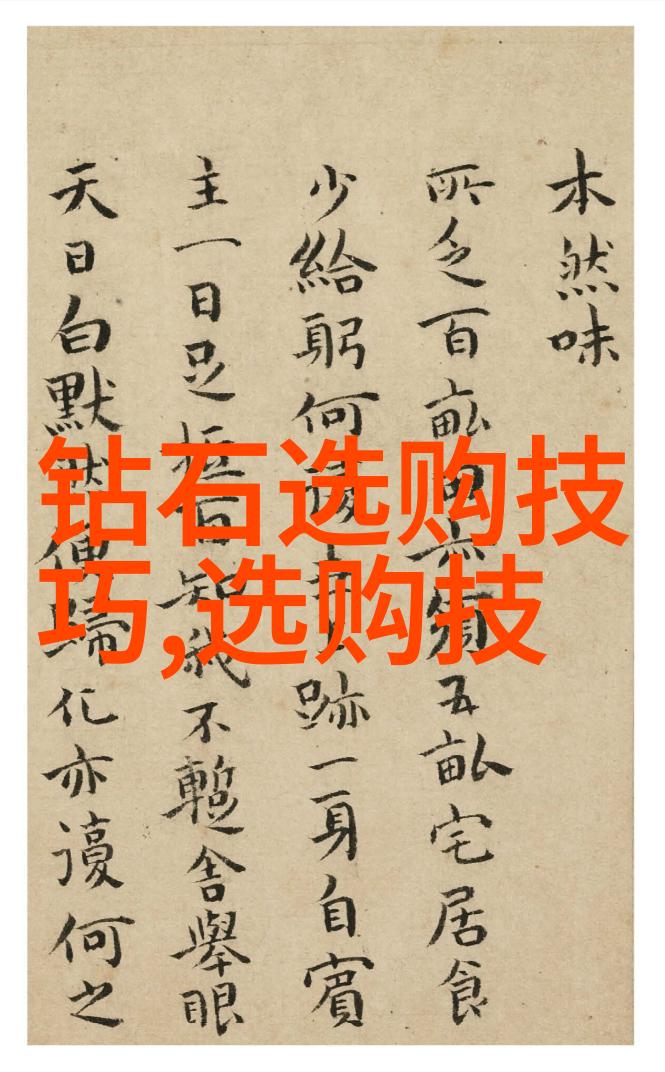 本然味
所乏百畝田亦五畝宅居食
少給躬何跡一身自賓
主一日足知我不暫舍舉眼
天日白默默便歸化亦何之
钻石选购技
巧,选购技